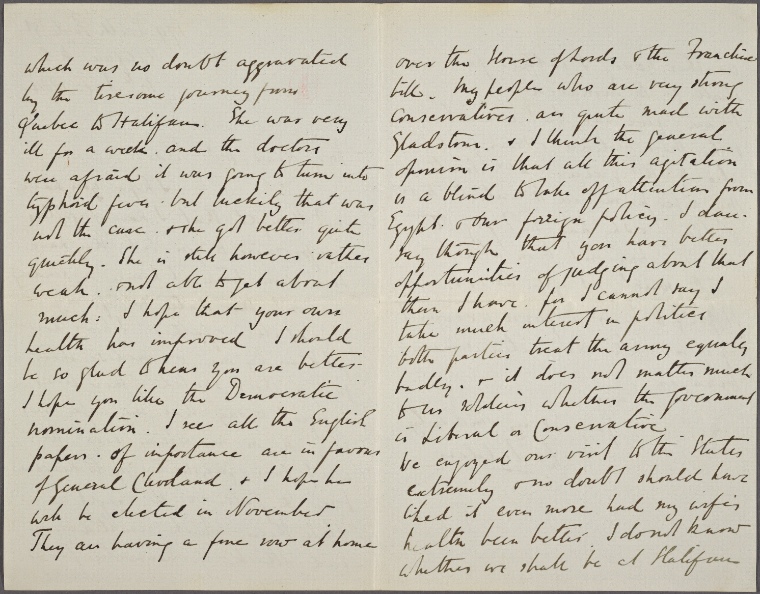 which was no doubt aggravated
by the tiresome journey from
Quebec to Halifax. She was very
ill for a week. and the doctors
were afraid it was going to turn into
typhoid fever. but luckily that was
not the case. & she got better quite
quickly. She is still however rather
weak. & not able to get about
much: I hope that your own
health has improved I should
be so glad to hear you are better.
I hope you like the Democratic
nomination. I see all the English
papers. of importance are in favour
of General Cleveland. & I hope he
will be elected in November
They are having a fine row at home
over the House of Lords & the Franchise
bill. My people who are very strong
Conservatives. are quite mad with
Gladstone. & I think the general
opinion is that all this agitation
is a blind to take off attention from
Egypt. & our foreign policy. I dare-
say though that you have better
opportunities of judging about that
than I have. for I cannot say I
take much interest in politics
both parties treat the army equally
badly. & it does not matter much
to us soldiers whether the Government
is Liberal or Conservative
We enjoyed our visit to the States
extremely & no doubt should have
liked it even more had my wife's
health been better. I do not know
whether we shall be at Halifax